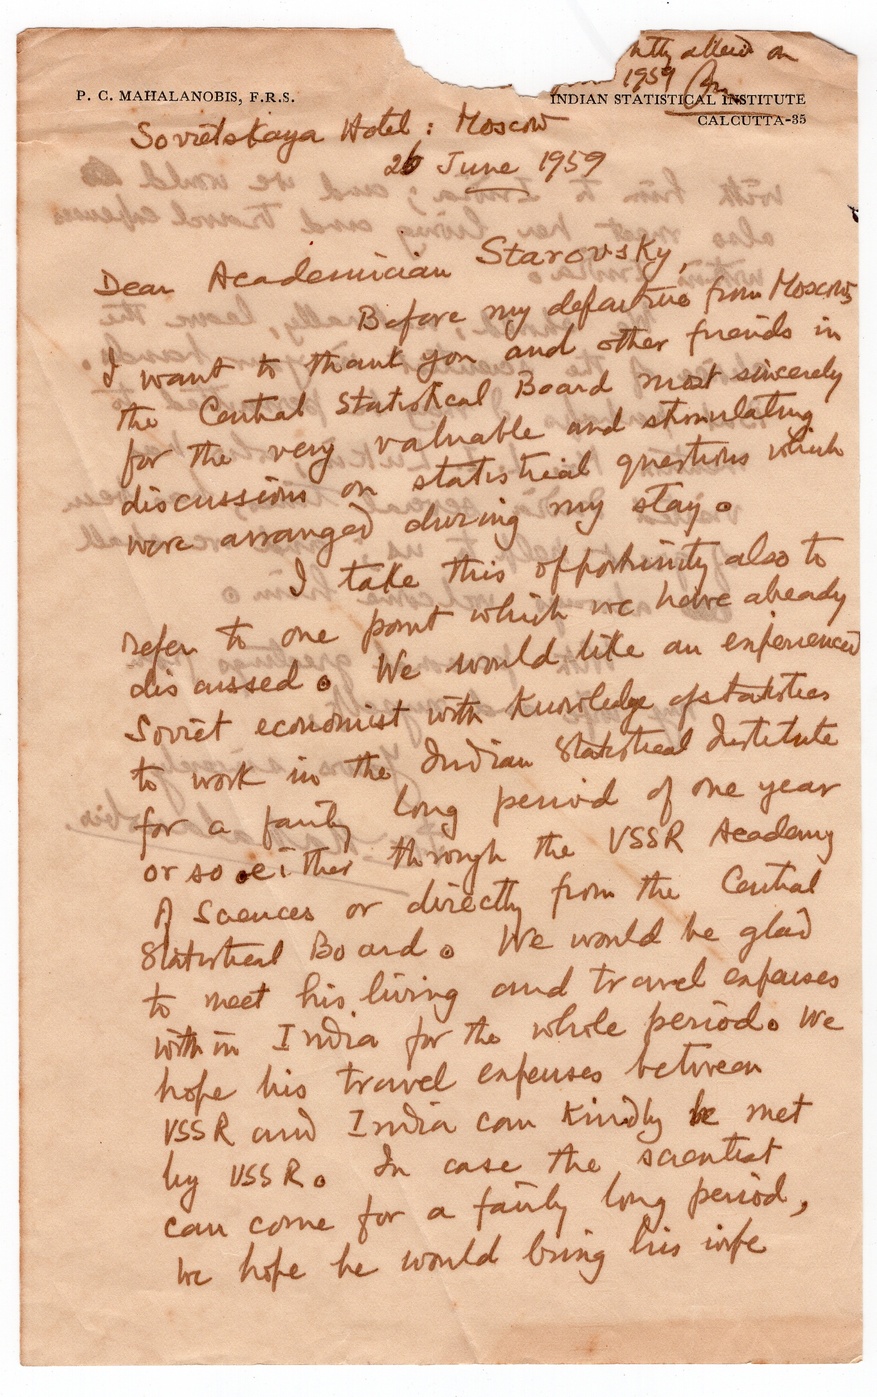 on
1959
P. C. MAHALANOBIS, F.R.S.
INDIAN STATISTICAL INSTITUTE
CALCUTTA-35
Sovietskaya Hotel: Moscow
26 June 1959
Dear Academician Starovsky,
Before my departure from Moscow,
I want to thank you and other friends in
the Central Statistical Board most sincerely
for the very valuable and stimulating
discussions on statistical questions which
were arranged during my stay.
I take this opportunity also to
refer to one point which we have already
discussed. We would like an experienced
Soviet economist with knowledge of statistics
to work in the Indian Statistical Institute
for a fairly long period of one year
or so either through the USSR Academy
of Sciences or directly from the Central
Statistical Board. We would be glad
to meet his living and travel expenses
within India for the whole period. We
hope his travel expenses between
USSR and India can kindly be met
by USSR. In case the scientist
can come for a fairly long period,
we hope he would bring his wife